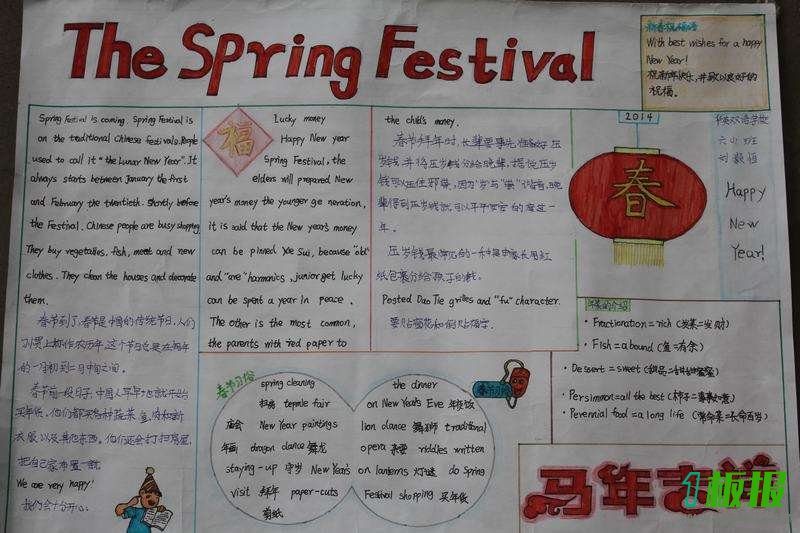 The Spring Festival
新春祝福语
With best wishes for a happy
New Year!
祝新年快乐,并致以良好的
祝福。
Spring Festival is coming. Spring Festival is
on the traditional Chinese festivals. People
used to call it "the Lunar New Year". It
always starts between January the first
and February the twentieth. Shortly before
the Festival. Chinese people are busy shopping
They buy vegetables, fish, meat and new
clothes. They clean the houses and decorate
them.
春节到了,春节是中国的传统节日,人们
习惯上称作农历年。这个节日总是在每年
的一月初到二月中间之间。
春节前一段日子,中国人早早地就开始
买年货,他们都买各种蔬菜、鱼、肉和新
衣服以及其他东西。他们还会打扫房屋,
把自己家布置一新。
We are very happy!
我们会十分开心。
福
Lucky money
Happy New year
Spring Festival, the
elders will prepared New
year's money the younger ge neration,
it is said that the New year's money
can be pinned Xie Sui, because "old"
and "are" harmonics, junior get lucky
can be spent a year in peace.
The other is the most common,
the parents with red paper to
the child's money.
春节拜年时,长辈要事先准备好压
岁钱,并将压岁钱分给晚辈,据说压岁
钱可以压住邪祟,因为"岁"与"祟"谐音,晚
辈得到压岁钱就可以平平安安的度过一
年。
压岁钱最常见的一种是由家长用红
纸包裹分给孩子的钱。
Posted Dao Tie grilles and "fu" character.
要贴窗花和倒贴福字。
2014
春
华英双语学校
六(4)班
Happy
New
Year!
年菜的介绍
· Fractionation = rich (发菜=发财)
· Fish = abound (鱼=有余)
· Dessert = sweet (甜品=甜甜蜜蜜)
· Persimmon = all the best (柿子=事事如意)
· Perennial food = a long life (常命菜=长命百岁)
春节习俗
spring cleaning
扫房 temple fair
庙会 New Year paintings
年画 dragon dance 舞龙
staying-up 守岁 New Year's
visit 拜年 paper-cuts
剪纸
the dinner
on New Year's Eve 年夜饭
lion dance 舞狮 traditional
opera 京剧 riddles written
on lanterns 灯谜 do Spring
Festival shopping 买年货
春节习俗
马年吉祥
1板报